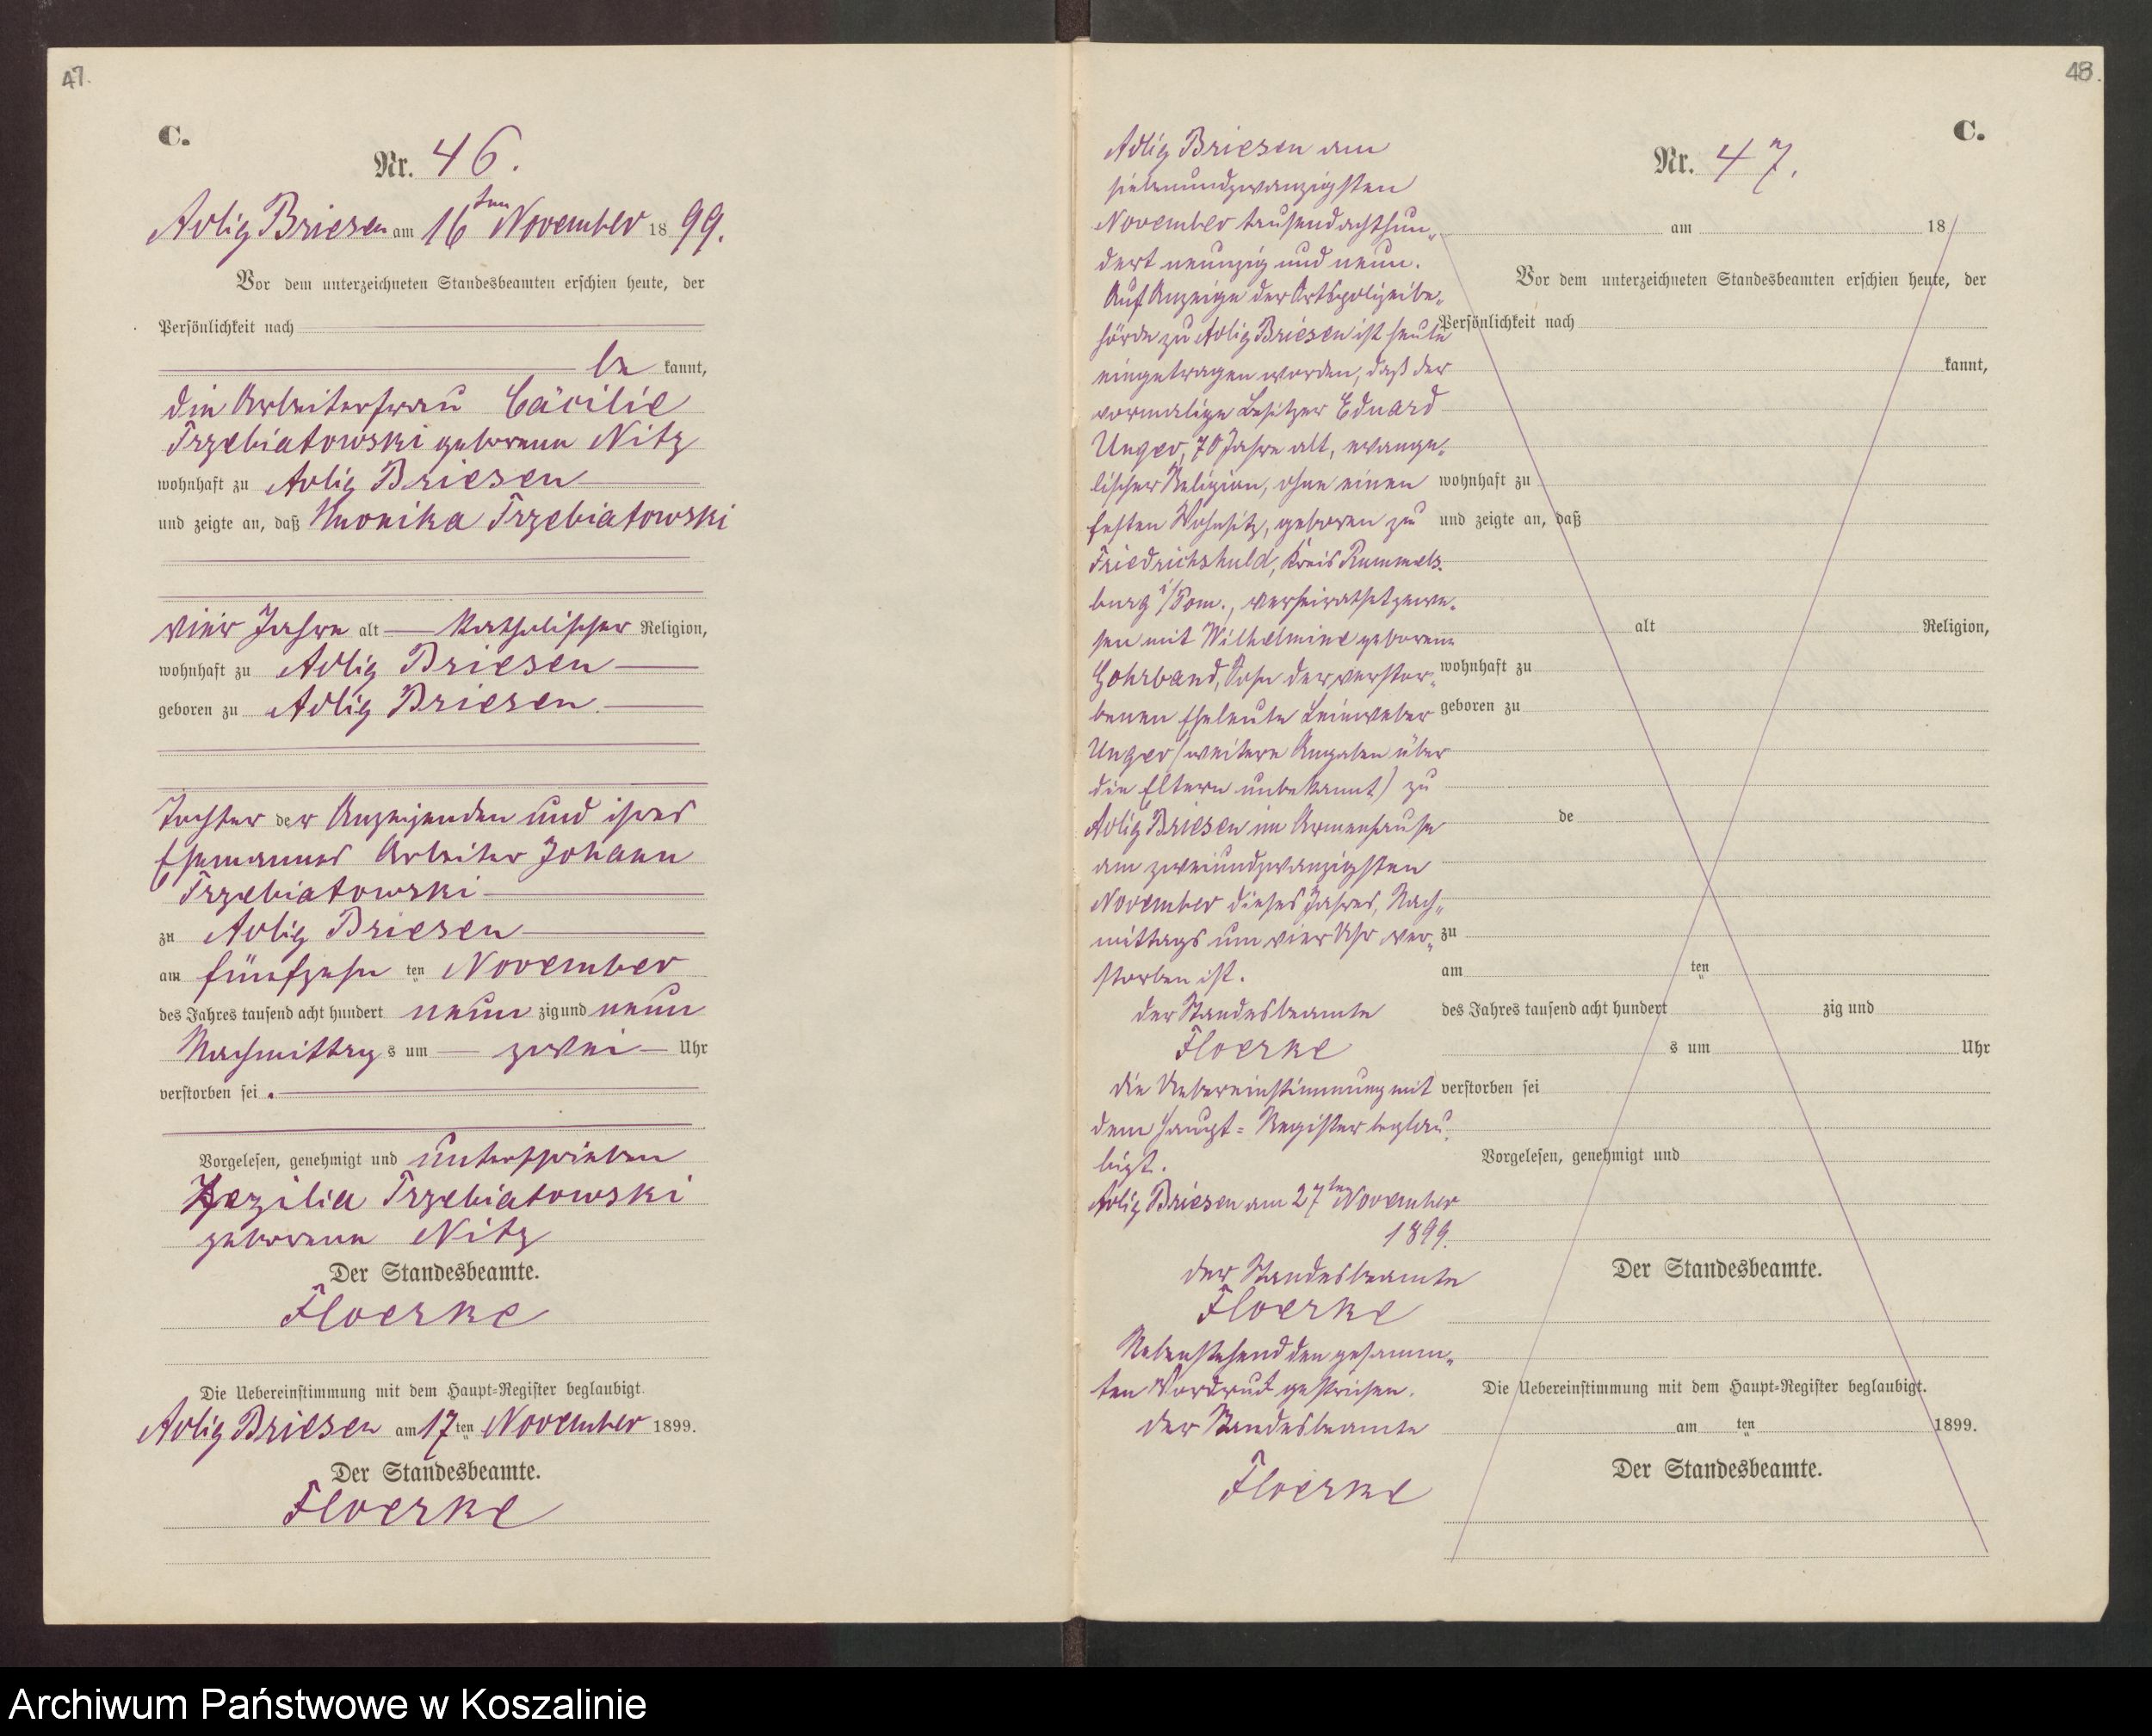 47.
C.
Nr. 46.
Adlig Briesen am 16ten November 1899.
Vor dem unterzeichneten Standesbeamten erschien heute, der
Persönlichkeit nach
be kannt,
die Arbeiterfrau Cäcilie
Trzebiatowski geborene Nitz
wohnhaft zu Adlig Briesen
und zeigte an, daß Monika Trzebiatowski
vier Jahre alt katholischer Religion,
wohnhaft zu Adlig Briesen
geboren zu Adlig Briesen.
Tochter der Anzeigenden und ihres
Ehemannes Arbeiter Johann
Trzebiatowski
zu Adlig Briesen
am fünfzehn ten November
des Jahres tausend acht hundert neun zig und neun
Nachmittag s um zwei Uhr
verstorben sei.
Vorgelesen, genehmigt und unterschrieben
Zezilia Trzebiatowski
geborene Nitz
Der Standesbeamte.
Floerke
Die Uebereinstimmung mit dem Haupt-Register beglaubigt.
Adlig Briesen am 17ten November 1899.
Der Standesbeamte.
Floerke
48.
C.
Adlig Briesen am
siebenundzwanzigsten
November tausendachthun-
dert neunzig und neun.
Auf Anzeige der Ortspolizeibe-
hörde zu Adlig Briesen ist heute
eingetragen worden, daß der
vormalige Besitzer Eduard
Unger, 70 Jahre alt, evange-
lischer Religion, ohne einen
festen Wohnsitz, geboren zu
Friedrichshuld, Kreis Rummels-
burg i/Pom., verheirathet gewe-
sen mit Wilhelmine geborene
Gohrband, Sohn der verstor-
benen Eheleute Leinweber
Unger (weitere Angaben über
die Eltern unbekannt) zu
Adlig Briesen im Armenhause
am zweiundzwanzigsten
November dieses Jahres, Nach-
mittags um vier Uhr ver-
storben ist.
der Standesbeamte
Floerke
die Uebereinstimmung mit
dem Haupt-Register beglau-
bigt.
Adlig Briesen am 27ten November
1899.
der Standesbeamte
Floerke
Nebenstehend den gesamm-
ten Vordruck gestrichen.
der Standesbeamte
Floerke
Nr. 47.
am 18
Vor dem unterzeichneten Standesbeamten erschien heute, der
Persönlichkeit nach
kannt,
wohnhaft zu
und zeigte an, daß
alt Religion,
wohnhaft zu
geboren zu
de
zu
am ten
des Jahres tausend acht hundert zig und
s um Uhr
verstorben sei
Vorgelesen, genehmigt und
Der Standesbeamte.
Die Uebereinstimmung mit dem Haupt-Register beglaubigt.
am ten 1899.
Der Standesbeamte.
Archiwum Państwowe w Koszalinie